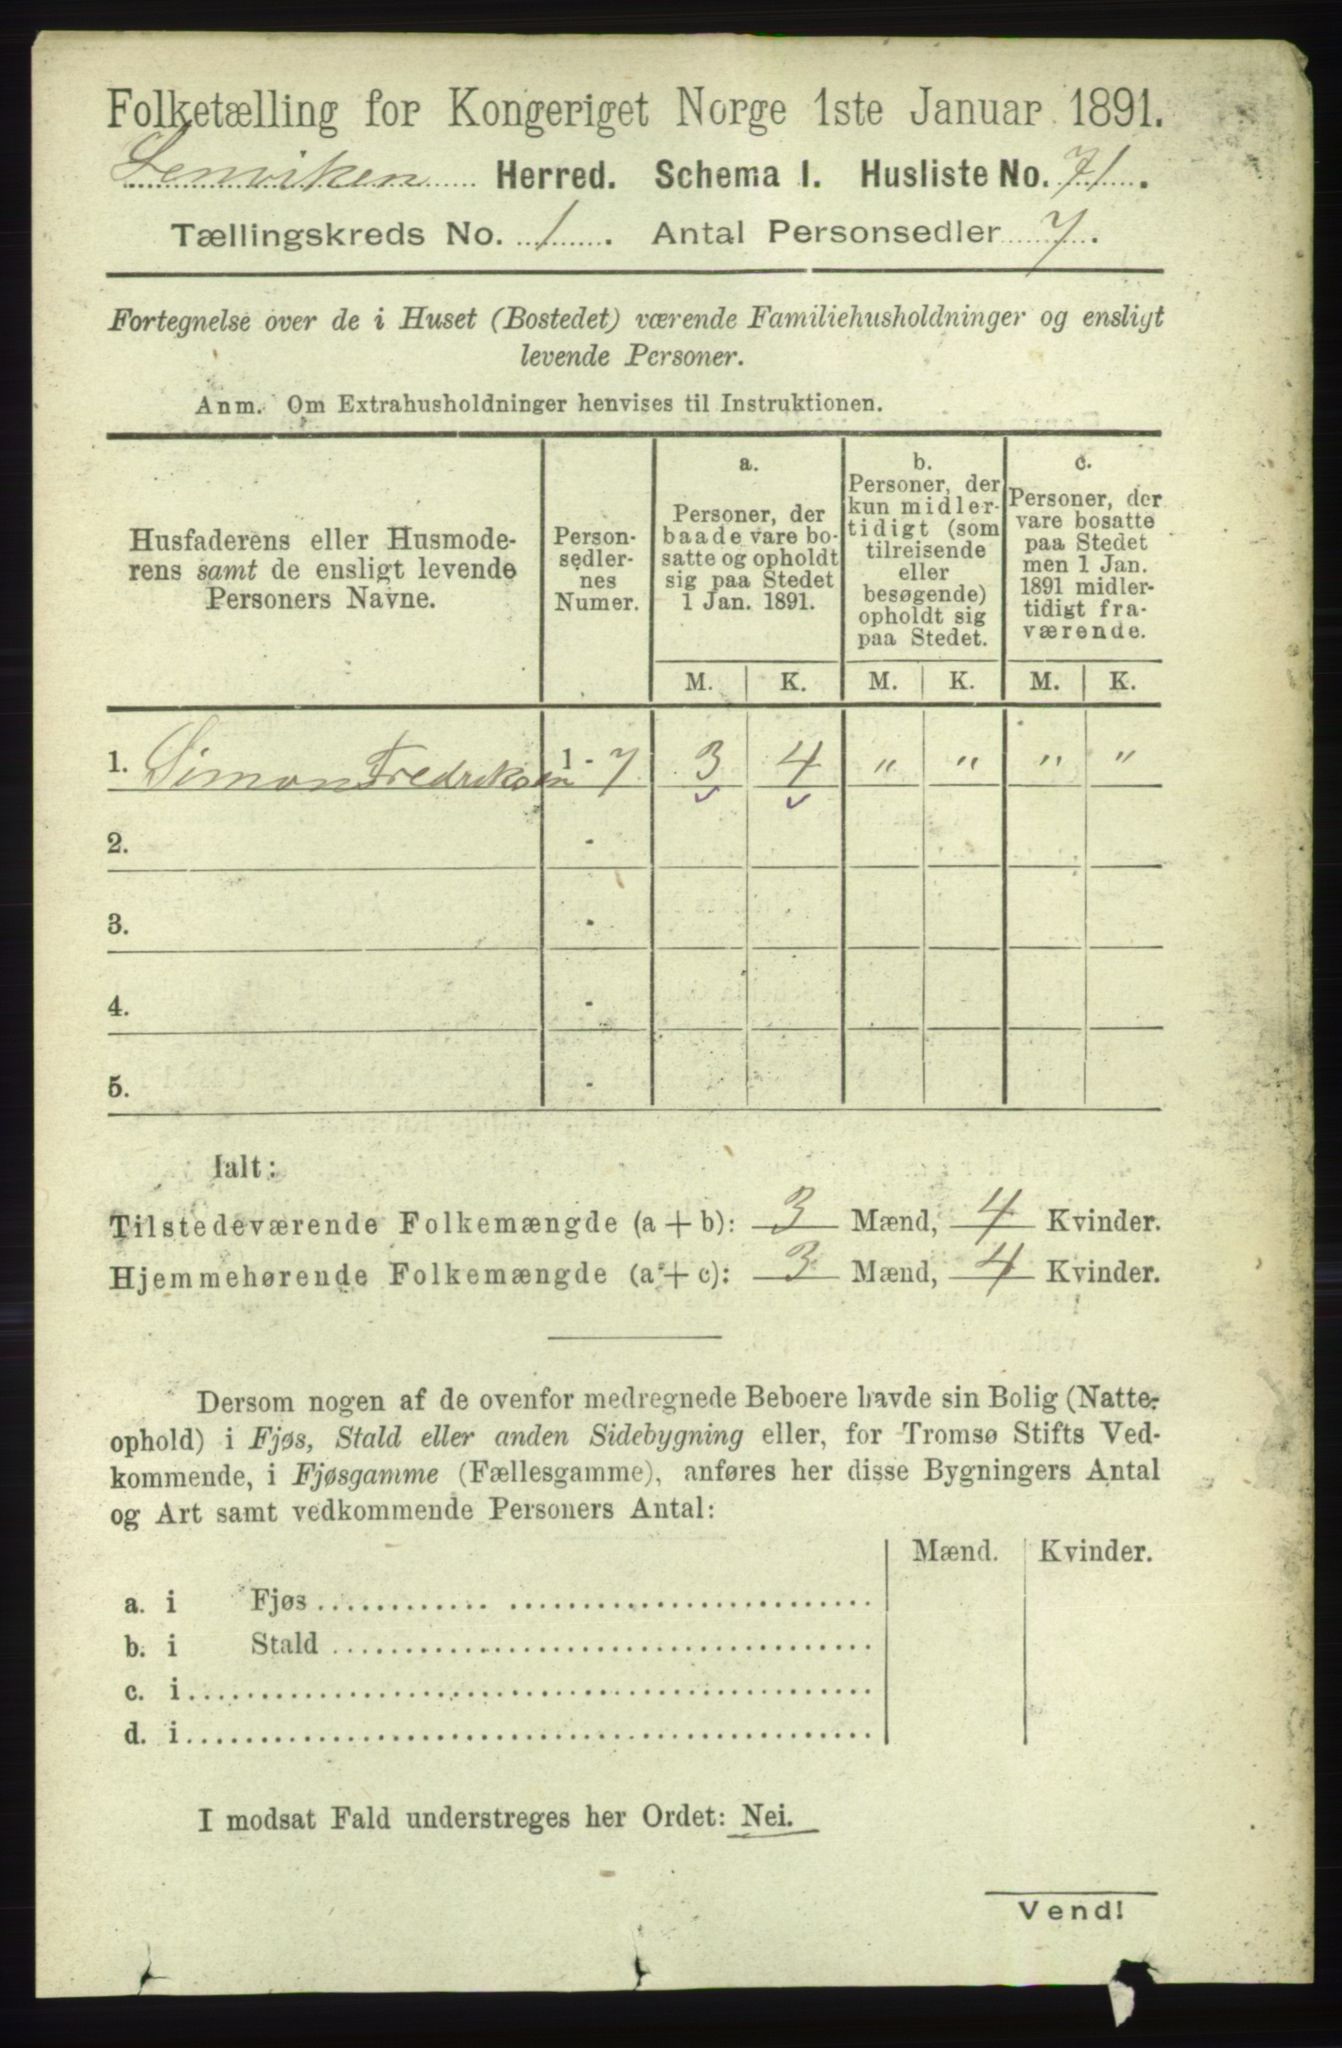 Folketælling for Kongeriget Norge 1ste Januar 1891.
Lenviken Herred. Schema I. Husliste No. 71.
Tællingskreds No. 1. Antal Personsedler 7.
Fortegnelse over de i Huset (Bostedet) værende Familiehusholdninger og ensligt
levende Personer.
Anm. Om Extrahusholdninger henvises til Instruktionen.
Husfaderens eller Husmode-
rens samt de ensligt levende
Personers Navne.
Person-
sedler-
nes
Numer.
a.
Personer, der
baade vare bo-
satte og opholdt
sig paa Stedet
1 Jan. 1891.
b.
Personer, der
kun midler-
tidigt (som
tilreisende
eller
besøgende)
opholdt sig
paa Stedet.
c.
Personer, der
vare bosatte
paa Stedet
men 1 Jan.
1891 midler-
tidigt fra-
værende.
M. K. M. K. M. K.
1. Simon Fredriksen 1 - 7 3 4 " " " "
2. -
3. -
4. -
5. -
Ialt:
Tilstedeværende Folkemængde (a + b): 3 Mænd, 4 Kvinder.
Hjemmehørende Folkemængde (a + c): 3 Mænd, 4 Kvinder.
Dersom nogen af de ovenfor medregnede Beboere havde sin Bolig (Natte-
ophold) i Fjøs, Stald eller anden Sidebygning eller, for Tromsø Stifts Ved-
kommende, i Fjøsgamme (Fællesgamme), anføres her disse Bygningers Antal
og Art samt vedkommende Personers Antal:
Mænd. Kvinder.
a. i Fjøs
b. i Stald
c. i
d. i
I modsat Fald understreges her Ordet: Nei.
Vend!